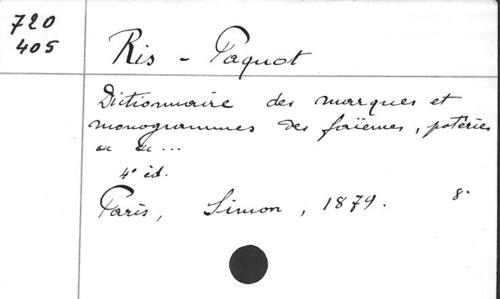 720
405
Ris - Paquot
Dictionnaire des marques et
monogrammes des faïences, poteries
4e éd.
Paris, Simon, 1879. 8.